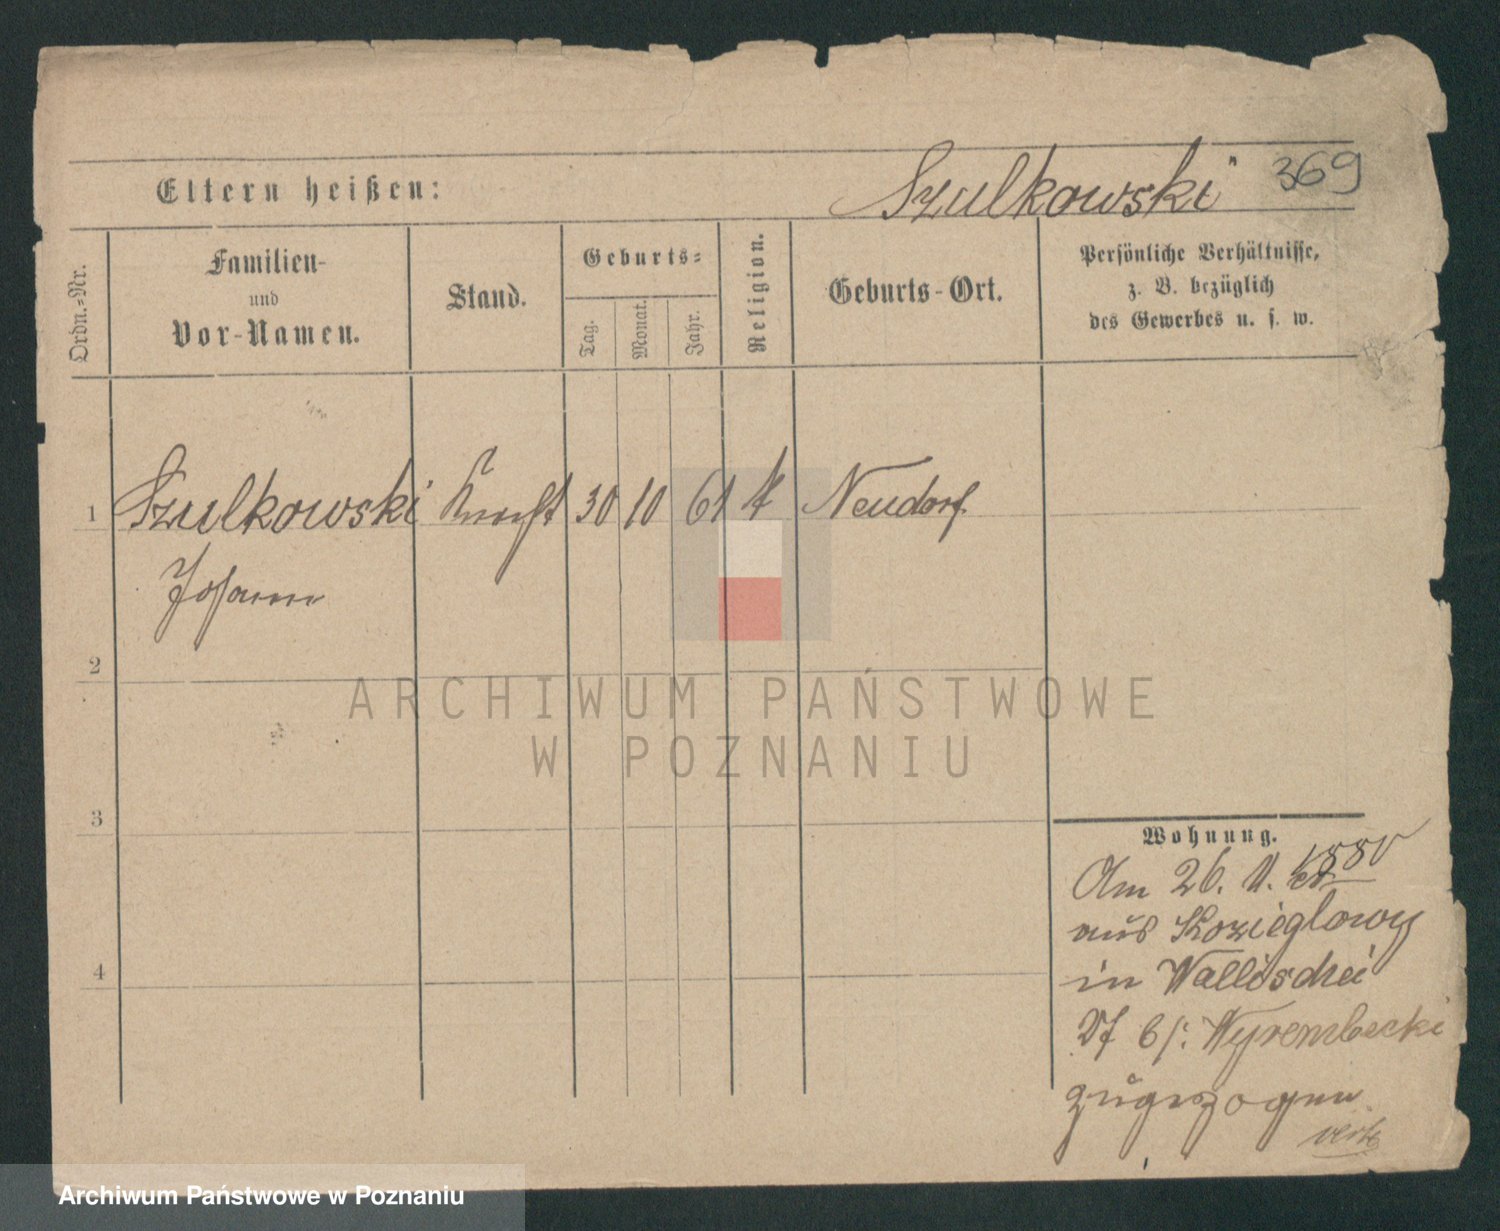 Szulkowski 369
Eltern heißen:
Ordn.-Nr.
Familien- und Vor-Namen.
Stand.
Geburts-
Tag.
Monat.
Jahr.
Religion.
Geburts-Ort.
Persönliche Verhältnisse,
z. B. bezüglich
des Gewerbes u. s. w.
1 Szulkowski Knecht 30 10 61 k Neudorf
Johann
2
3
4
Wohnung.
Am 26. 11. 1880
aus Kozieglowy
in Wallischei
b/: Wyrembecki
zugezogen
ARCHIWUM PAŃSTWOWE
W POZNANIU
Archiwum Państwowe w Poznaniu